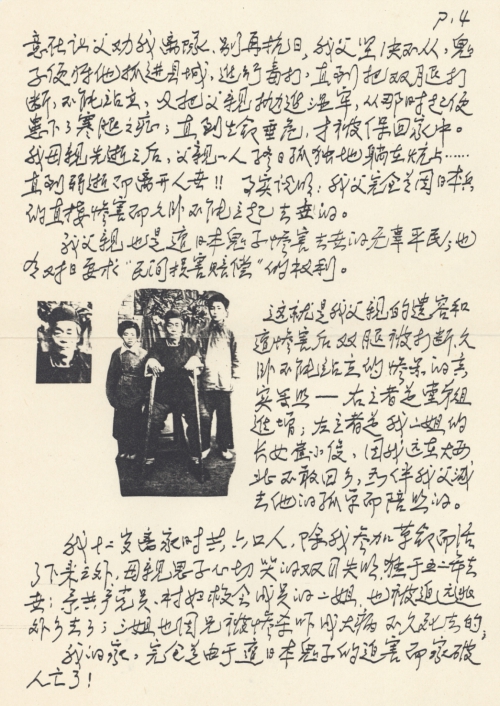 P.4
意在让父劝我离队、别再抗日，我父坚决不从，鬼
子便将他抓进县城，进行毒打，直到把双腿打
断，不能站立，又把父亲投进湿牢，从那时起便
患下了寒腿之症；直到生命垂危，才被保回家中。
我母亲先逝之后，父亲一人终日孤独地躺在炕上……
直到弱逝而离开人世!! 事实说明：我父完全是因日本兵
的直接惨害而久卧不能立起去世的。
我父亲也是遭日本鬼子惨害去世的无辜平民；也
有对日要求“民间损害赔偿”的权利。
这就是我父亲的遗容和
遭惨害后双腿被打断久
卧不能站立的惨景的真
实写照——右立者是
进增；左立者是我二姐的
长女 小俊，因我远在大西
北不敢回乡，为伴我父减
去他的孤单而陪照的。
我十二岁离家时共六口人，除我参加革命而活
了下来之外，母亲思子心切哭的双目失明，继于五二年去
世；系共产党员、村妇救会成员的二姐，也被迫远逃
外乡去了；三姐也因兄被惨杀吓成大病不久死去的；
我的家，完全是由于遭日本鬼子的迫害而家破
人亡了！